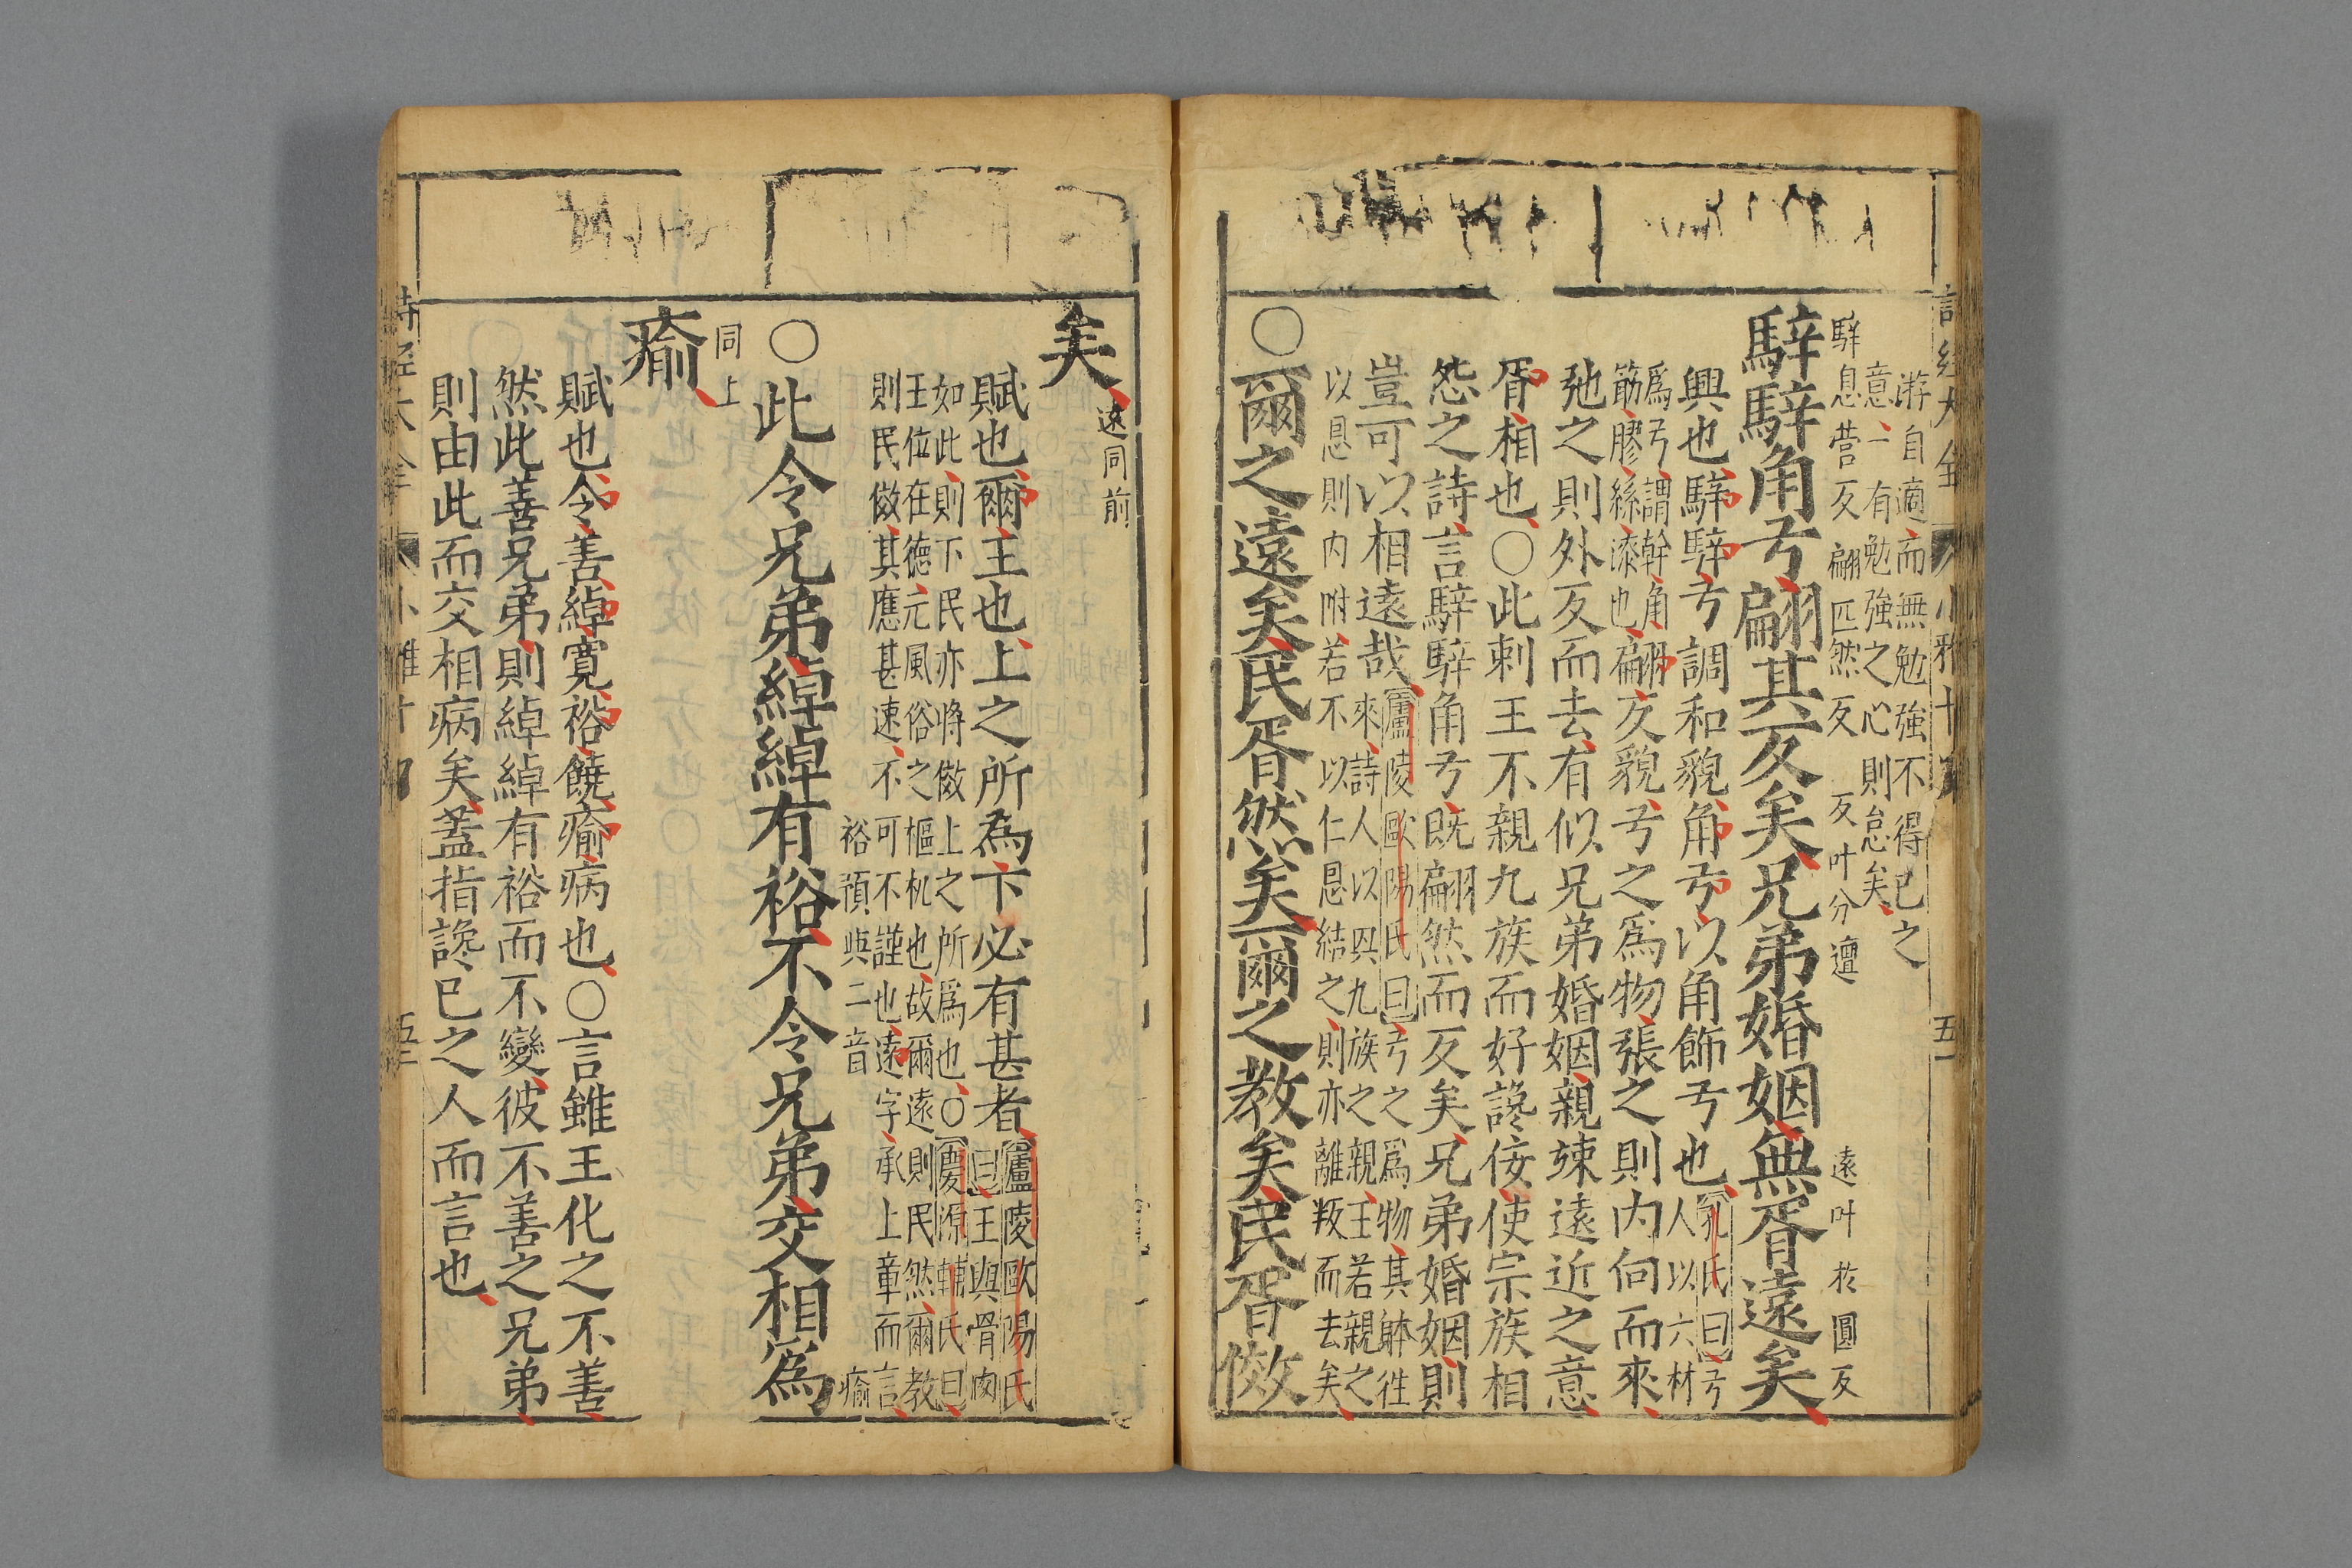 詩經大全 小雅十四 五一
游自適而無勉強不得已之
意一有勉強之心則怠矣
騂息營反 翩匹然反 反叶分邅 遠叶於圓反
騂騂角弓翩其反矣兄弟婚姻無胥遠矣
興也騂騂弓調和貌角弓以角飾弓也
氏曰弓
人以六材
爲弓謂幹角
筋膠絲漆也
翩反貌弓之爲物張之則内向而來
弛之則外反而去有似兄弟婚姻親疎遠近之意
胥相也○此刺王不親九族而好讒佞使宗族相
怨之詩言騂騂角弓既翩然而反矣兄弟婚姻則
豈可以相遠哉
廬陵歐陽氏曰弓之爲物其體往
來詩人以興九族之親王若親之
以恩則内附若不以仁恩結之則亦離叛而去矣
○爾之遠矣民胥然矣爾之教矣民胥傚
矣 遠同前
賦也爾王也上之所爲下必有甚者
廬陵歐陽氏
曰王與骨肉
如此則下民亦將傚上之所爲也○慶源輔氏曰
王位在德元風俗之樞机也故爾遠則民然爾教
則民傚其應甚速不可不謹也遠字承上章而言
裕預與二音 瘉
○此令兄弟綽綽有裕不令兄弟交相爲
同上
瘉
賦也令善綽寬裕饒瘉病也○言雖王化之不善
然此善兄弟則綽綽有裕而不變彼不善之兄弟
則由此而交相病矣蓋指讒己之人而言也
詩經大全 小雅十四 五二